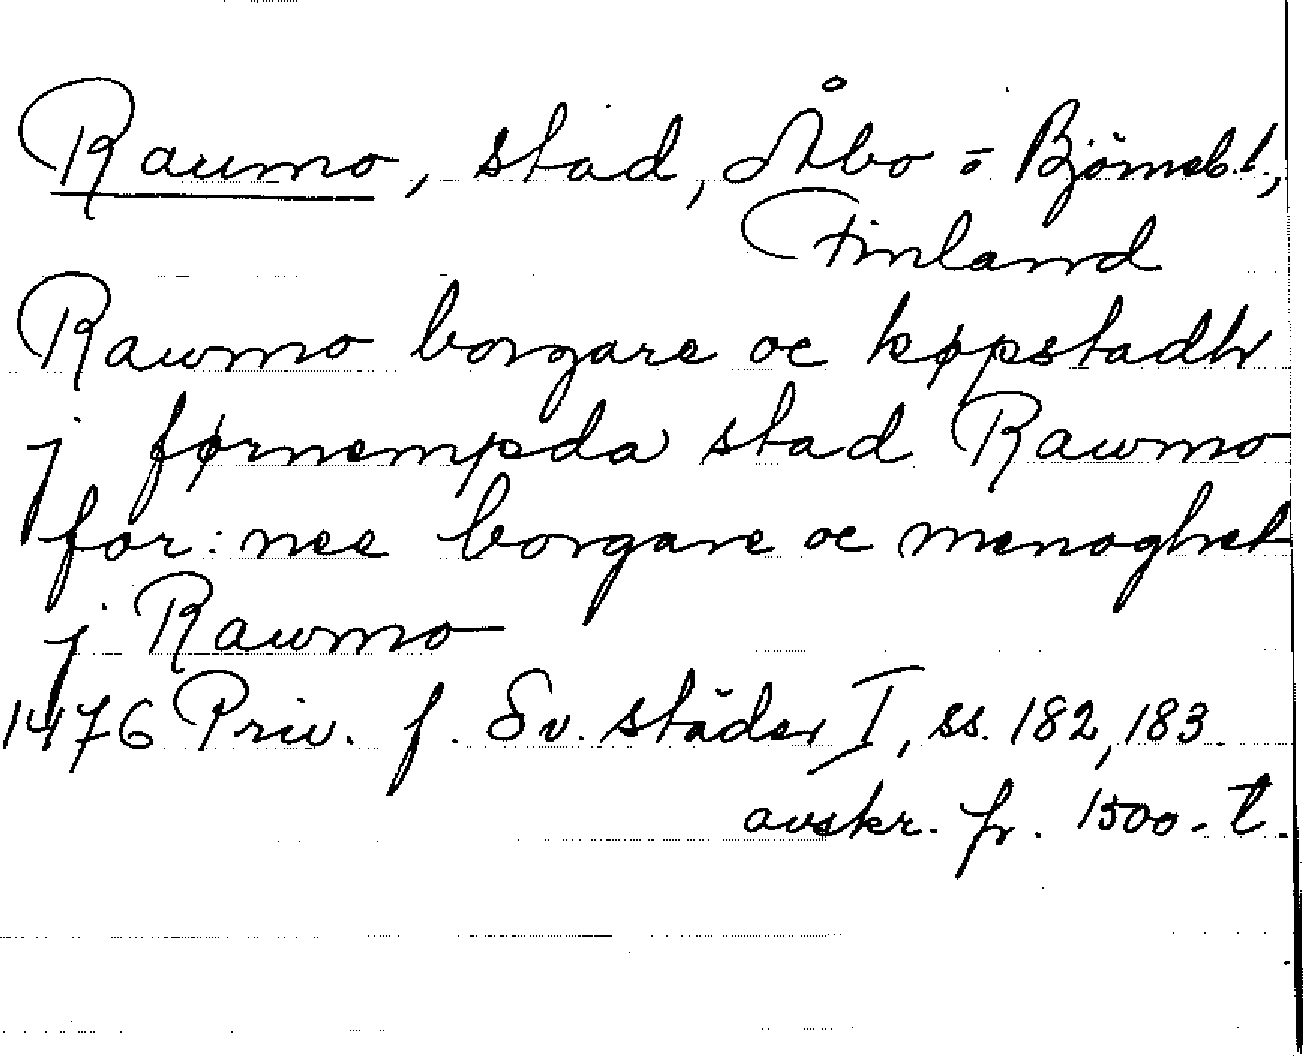 Raumo, stad, Åbo o Björneb. l.,
Finland
Rawmo borgare oc køpstadh
j førnempda stad Rawmo
for: nee borgare oc menoghet
j Rawmo
1476 Priv. f. Sv. städer I, ss. 182, 183.
avskr. fr. 1500-t.